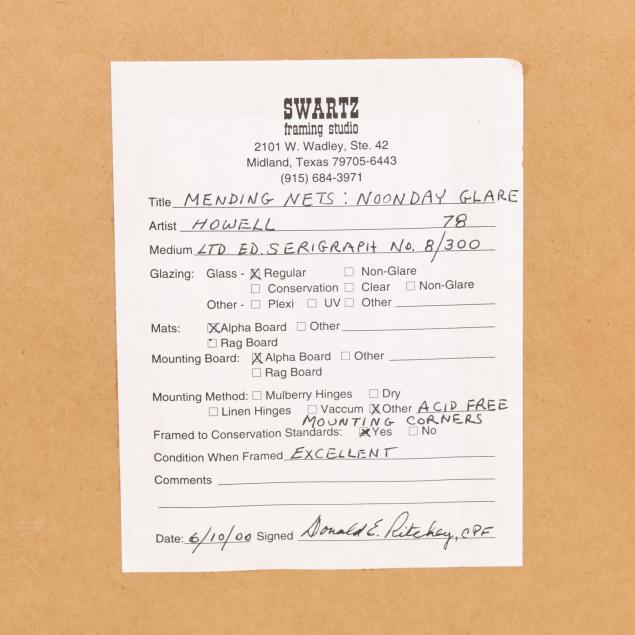 SWARTZ
framing studio
2101 W. Wadley, Ste. 42
Midland, Texas 79705-6443
(915) 684-3971
Title MENDING NETS: NOONDAY GLARE
Artist HOWELL 78
Medium LTD ED. SERIGRAPH No. 8/300
Glazing: Glass - ☒ Regular ☐ Non-Glare
☐ Conservation ☐ Clear ☐ Non-Glare
Other - ☐ Plexi ☐ UV ☐ Other
Mats: ☒ Alpha Board ☐ Other
☐ Rag Board
Mounting Board: ☒ Alpha Board ☐ Other
☐ Rag Board
Mounting Method: ☐ Mulberry Hinges ☐ Dry
☐ Linen Hinges ☐ Vaccum ☒ Other ACID FREE
MOUNTING CORNERS
Framed to Conservation Standards: ☒ Yes ☐ No
Condition When Framed EXCELLENT
Comments
Date: 6/10/00 Signed Donald E. Ritchey, CPF